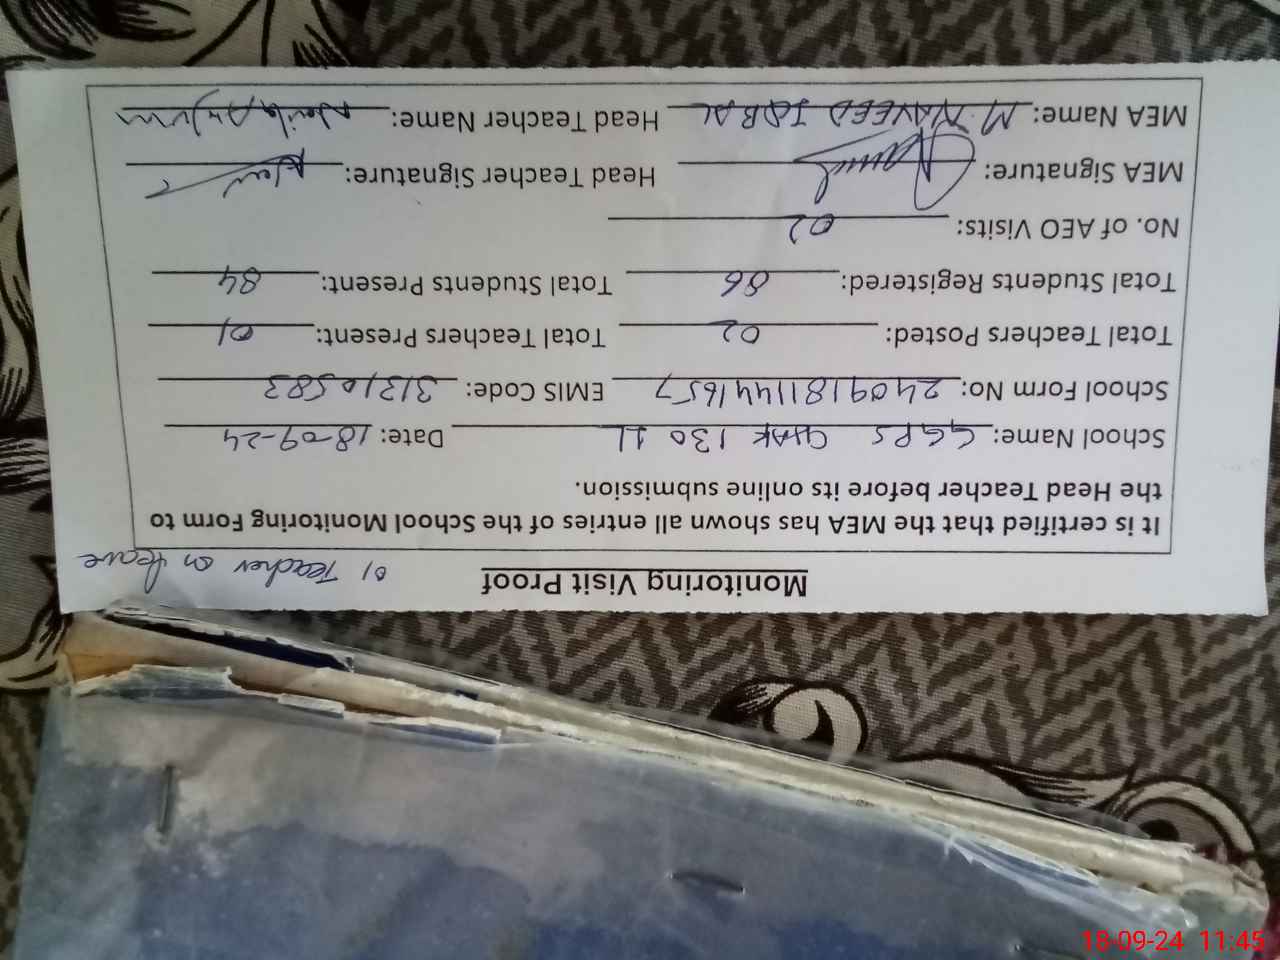 Monitoring Visit Proof 01 Teacher on leave
It is certified that the MEA has shown all entries of the School Monitoring Form to
the Head Teacher before its online submission.
School Name: GGPS CHAK 130 Date: 18-09-24
School Form No: 24091811441657 EMIS Code: 31310583
Total Teachers Posted: 02 Total Teachers Present: 01
Total Students Registered: 86 Total Students Present: 84
No. of AEO Visits: 02
MEA Signature: Head Teacher Signature:
MEA Name: M. NAVEED IQBAL Head Teacher Name: Naila Anjum
18-09-24 11:45